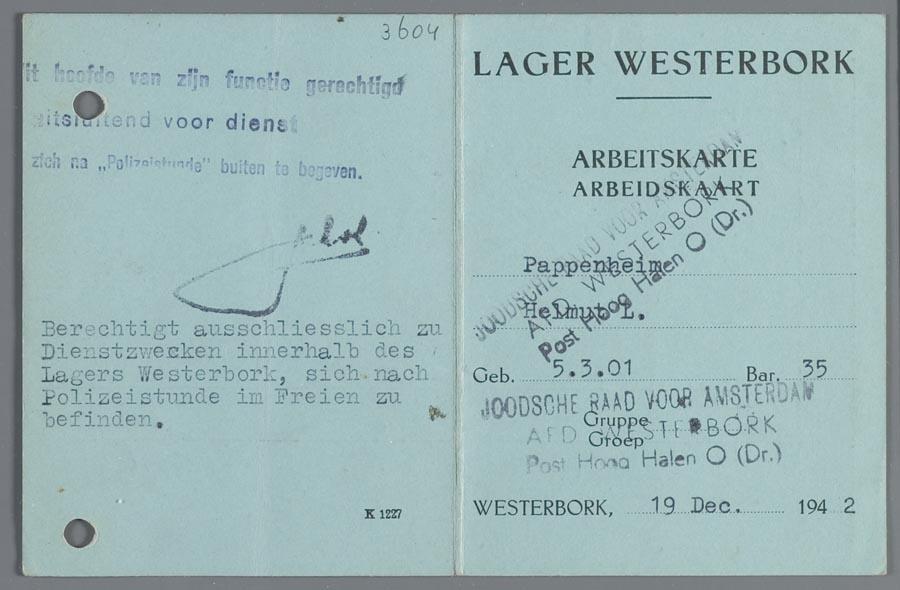 3604
it hoofde van zijn functie gerechtigd
uitsluitend voor dienst
zich na „Polizeistunde" buiten te begeven.
Berechtigt ausschliesslich zu
Dienstzwecken innerhalb des
Lagers Westerbork, sich nach
Polizeistunde im Freien zu
befinden.
K 1227
LAGER WESTERBORK
ARBEITSKARTE
ARBEIDSKAART
JOODSCHE RAAD VOOR AMSTERDAM
AFD WESTERBORK
Post Hoog Halen O (Dr.)
Pappenheim
Helmut L.
Geb. 5.3.01 Bar. 35
JOODSCHE RAAD VOOR AMSTERDAM
Gruppe
AFD WESTERBORK
Groep
Post Hoog Halen O (Dr.)
WESTERBORK, 19 Dec. 194 2